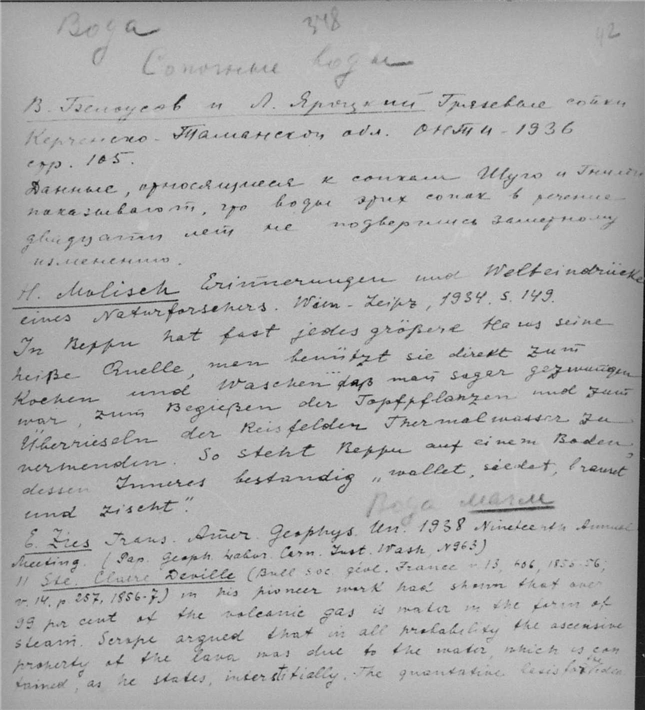 Вода
348
42
Сопочные воды
В. Белоусов и Л. Яроцкий Грязевые сопки
Керченско-Таманской обл. ОНТИ-1936
стр. 105.
Данные, относящиеся к сопкам Шуго и Гнилой
показывают, что воды этих сопок в течение
двадцати лет не подверглись заметному
изменению.
H. Molisch Erinnerungen und Welteindrücke
eines Naturforschers. Wien-Leipz, 1934. S. 149.
In Beppu hat fast jedes größere Haus seine
heiße Quelle, man benützt sie direkt zum
Kochen und Waschen daß man sogar gezwungen
war, zum Begießen der Topfpflanzen und zum
Überrieseln der Reisfelden Thermalwasser zu
verwenden. So steht Beppu auf einem Boden,
dessen Inneres beständig „wallet, siedet, brauset
und zischt".
Вода магм
E. Zies Trans. Amer. Geophys. Un. 1938 Nineteenth Annual
Meeting. (Pap. Geoph. Labor. Carn. Inst. Wash, N963)
11 Ste. Claire Deville (Bull soc. géol. France v. 13, 606, 1855-56;
v. 14. p. 257, 1856-7) in his pioneer work had shown that over
99 per cent of the volcanic gas is water in the form of
steam. Scrope argued that in all probability the ascensive
property of the lava was due to the water, which is con
tained, as he states, interstitially. The quantative basis for the